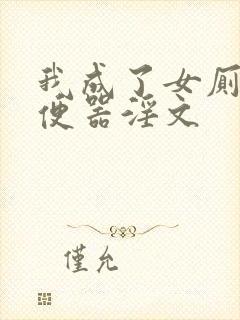 我成了女厕
便器淫文
僅允